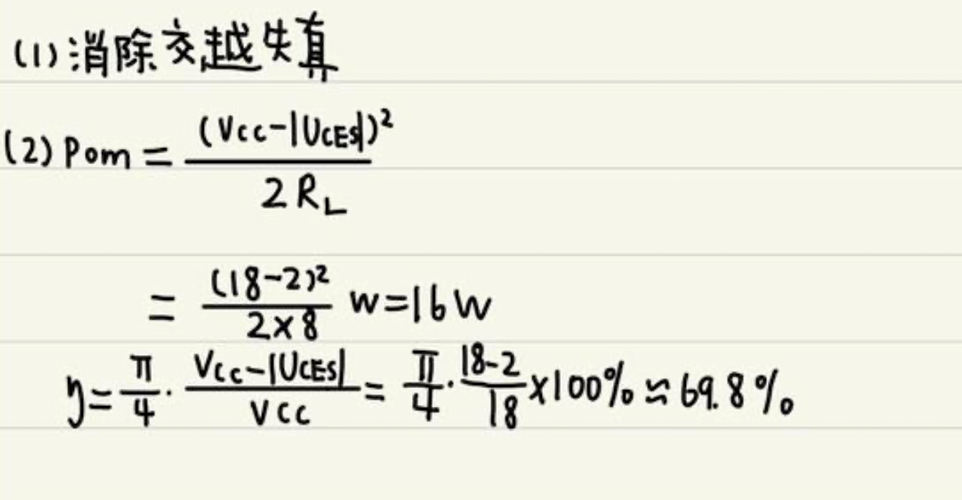 (1) 消除交越失真
(2) Pom = (Vcc-|UCES|)² / 2RL
= (18-2)² / 2×8 W = 16W
η = π/4 · Vcc-|UCES| / Vcc = π/4 · 18-2 / 18 ×100% ≈ 69.8%